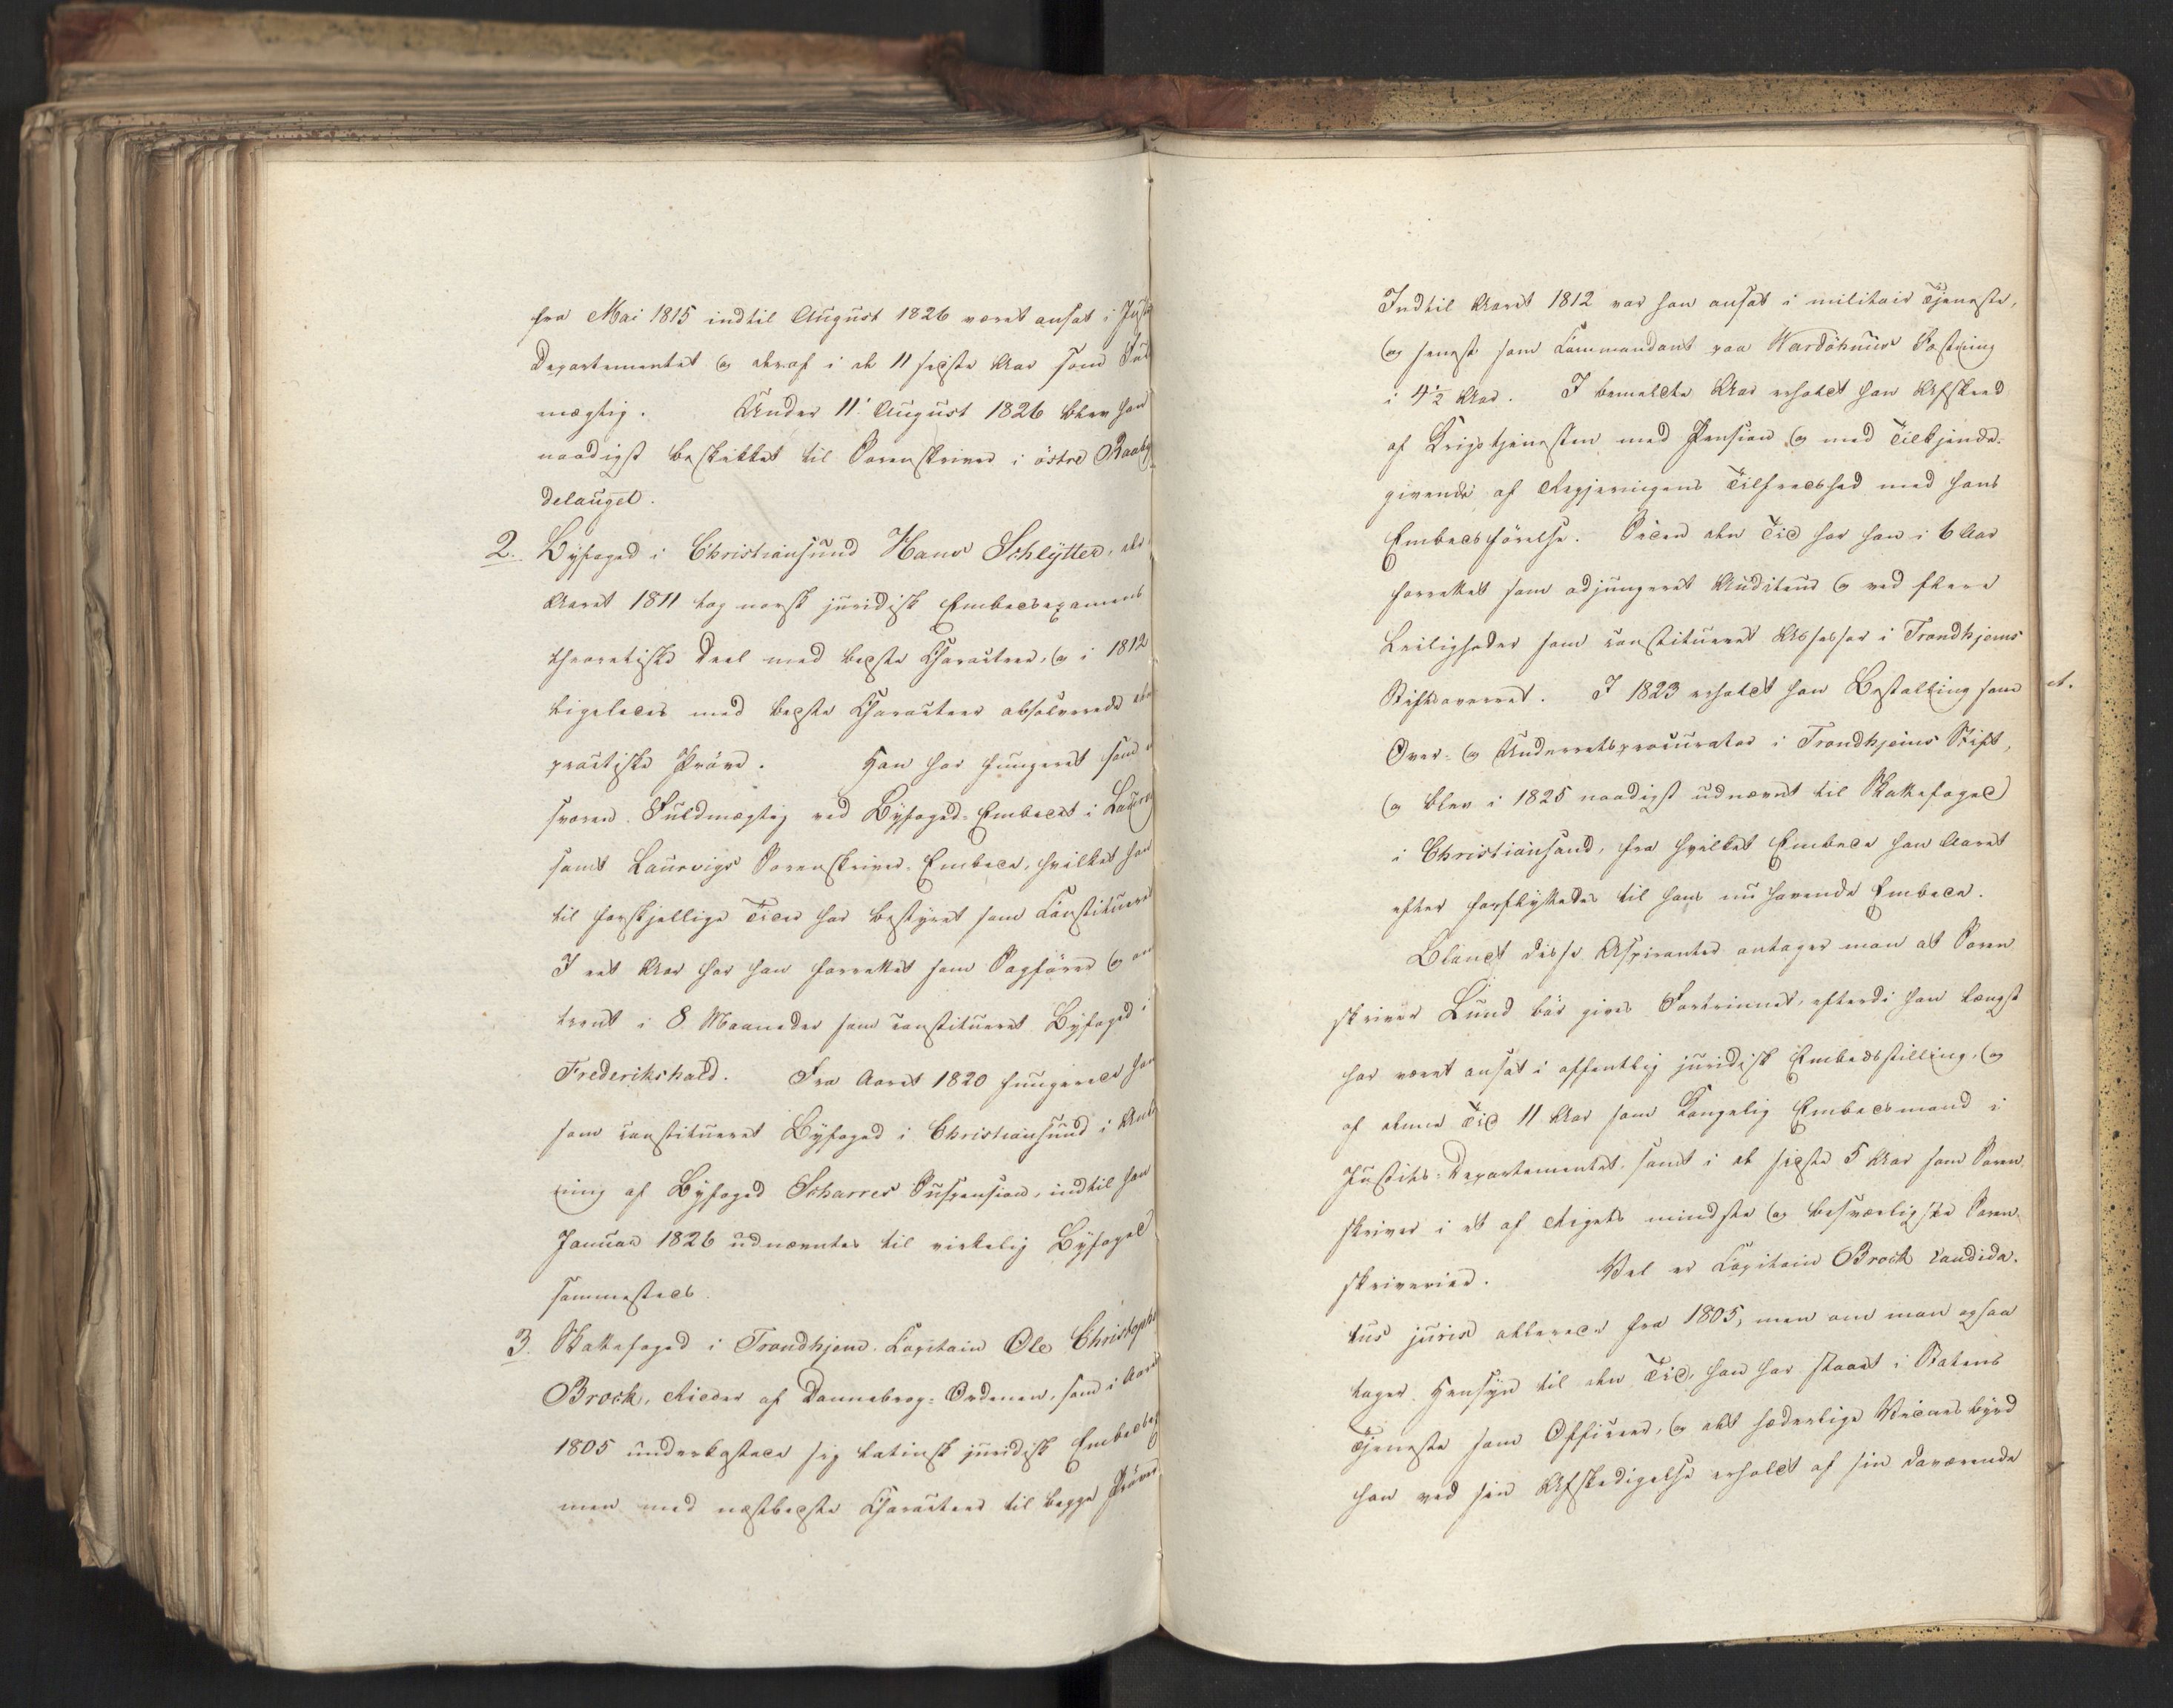 fra Mai 1815 indtil August 1826 været ansat i Just
Departementet og deraf i de 11 sidste Aar som Ful
mægtig. Under 11' August 1826 blev han
naadigst beskikket til Sorenskriver i östre Raaby
delauget.
2. Byfoged i Christiansund Hans Schlytter, der
Aaret 1811 tog norsk juridisk Embedsexamens
theoretiske Deel med bedste Charakteer, og i 1812
ligeledes med bedste Charakteer absolverede den
practiske Pröve. Han har fungeret som
svoren Fuldmægtig ved Byfoged-Embedet i Laurv
samt Laurvigs Sorenskriver-Embede, hvilket han
til forskjellige Tider har bestyret som Constitueret
I eet Aar har han forrettet som Sagförer og om
trent i 8 Maaneder som constitueret Byfoged i
Frederikshald. Fra Aaret 1820 fungerede han
som constitueret Byfoged i Christiansund i Anl
ning af Byfoged Scharres Suspension, indtil han
Januar 1826 udnævntes til virkelig Byfoged
sammesteds.
3. Rakkefoged i Trondhjem, Capitain Ole Christoph
Brock, Ridder af Dannebrog-Ordenen, som i Aaret
1805 underkastede sig latinsk juridisk Embedsex
men med næstbedste Charakteer til begge Pröver
Indtil Aaret 1812 var han ansat i militair Tjeneste,
og senest som Commandant paa Wardöhuus Fæstning
i 4½ Aar. I bemeldte Aar erholdt han Afskeed
af Krigstjenesten med Pension og med Tilkjende-
givende af Regjeringens Tilfredshed med hans
Embedsförelse. Siden den Tid har han i 6 Aar
forrettet som adjungeret Auditeur og ved flere
Leiligheder som constitueret Assessor i Trondhjems
Stiftsoverret. I 1823 erholdt han Bestalling som
Over- og Underretsprocurator i Trondhjems Stift,
og blev i 1825 naadigst udnævnt til Rakkefoged
i Christiansand, fra hvilket Embede han Aaret
efter forflyttedes til hans nu havende Embede.
Blandt disse Aspiranter antager man at Soren
skriver Lund bör gives Fortrinnet, efterdi han længst
har været ansat i offentlig juridisk Embedsstilling, og
af denne Tid 11 Aar som Kongelig Embedsmand i
Justits-Departementet, samt i de sidste 5 Aar som Soren
skriver i et af Rigets mindste og besværligste Soren-
skriverier. Vel er Capitain Brock Candida-
tus juris allerede fra 1805, men om man ogsaa
tager Hensyn til den Tid, han har staaet i Statens
Tjeneste som Officeer, og det hæderlige Vidnesbyrd
han ved sin Afskedigelse erholdt af sin daværende